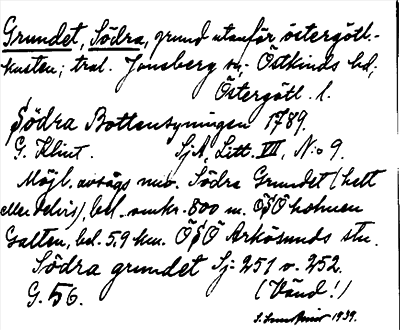 Grundet, Södra, grund utanför östergötl.-
kusten; tral. Jonsberg sn, Östkinds hd,
Östergötl. l.
Södra Bottensyningen 1789.
G. Klint. SjA, Litt. VII, N:o 9.
Möjl. avsågs nuv. Södra Grundet (helt
eller delvis), bel. omkr. 800 m. OSO holmen
Galten, bel. 5,9 km. OSO Arkösunds stn.
Södra grundet Sj: 251 o. 252.
G. 56. (Vänd!)
1939.